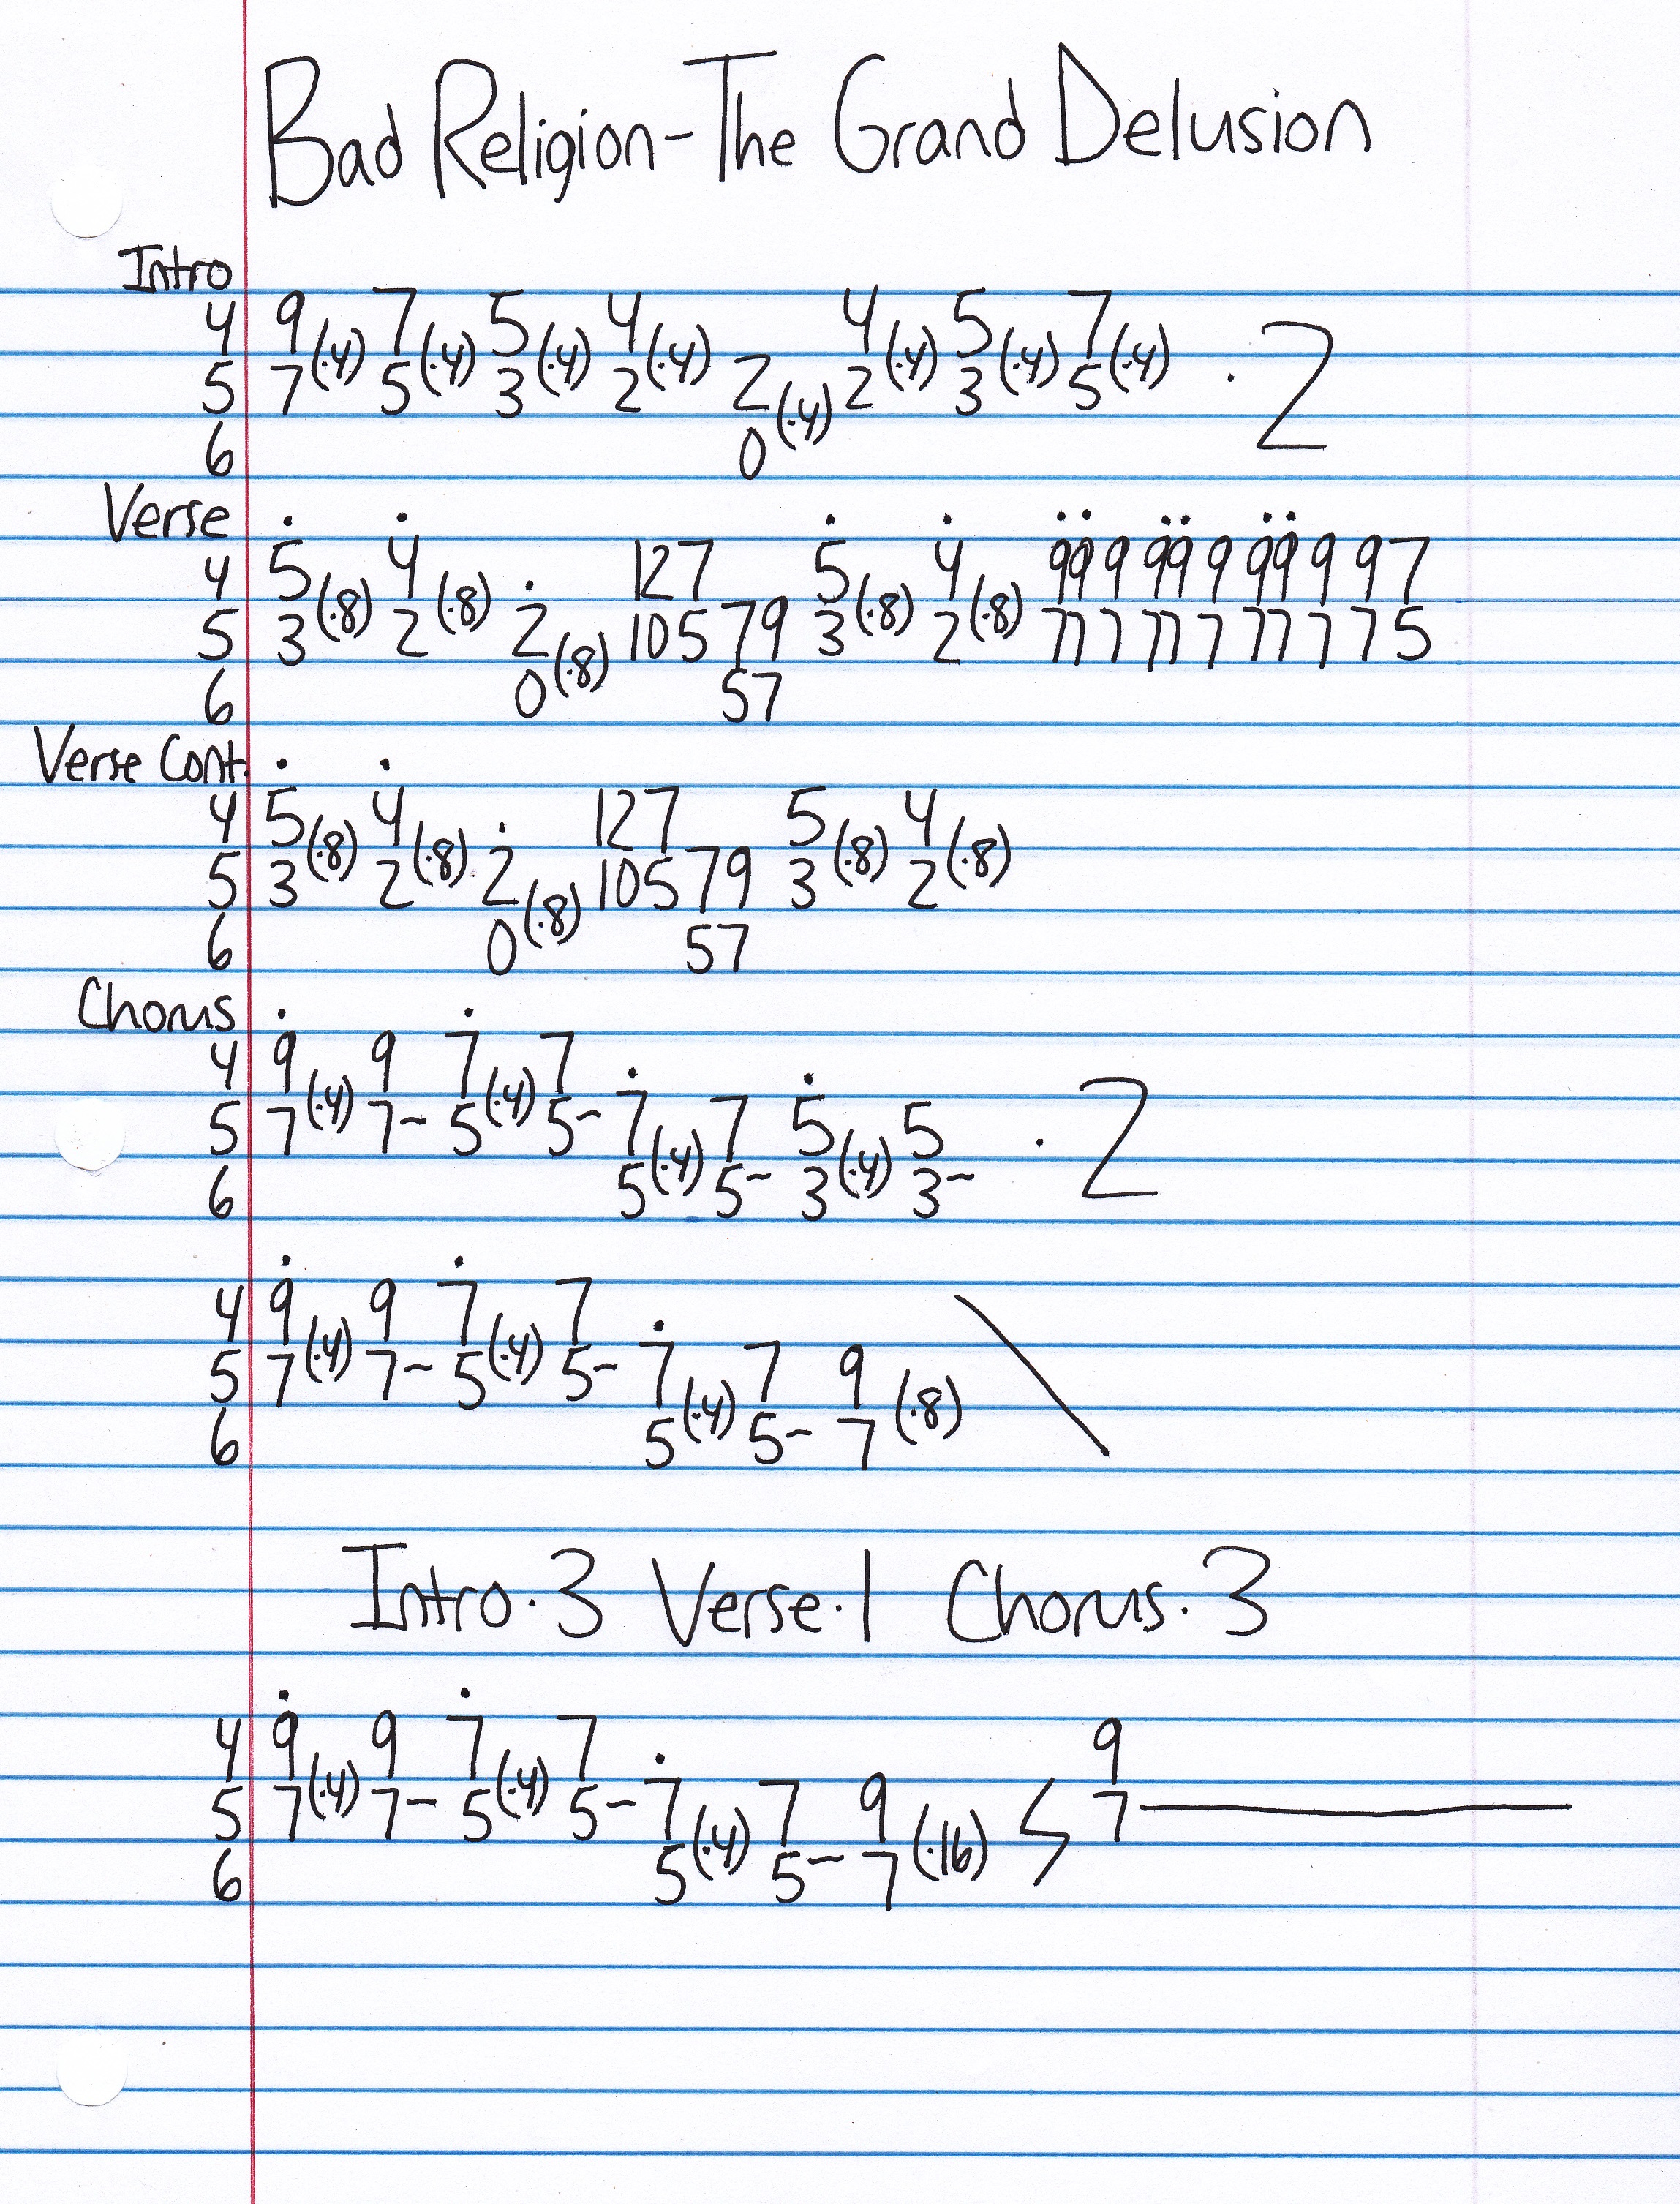 Bad Religion-The Grand Delusion
Intro
4 9 (·4) 7 (·4) 5 (·4) 4 (·4) 4 (·4) 5 (·4) 7 (·4) · 2
5 7 5 3 2 2 (·4) 2 3 5
6 0
Verse . . . . .. .. ..
4 5 (·8) 4 (·8) . 12 7 5 (·8) 4 (·8) 99 9 99 9 99 9 9 7
5 3 2 2 (·8) 10 5 7 9 3 2 77 7 77 7 77 7 7 5
6 0 5 7
Verse Cont. . .
4 5 (·8) 4 (·8) . 12 7 5 (·8) 4 (·8)
5 3 2 2 (·8) 10 5 7 9 3 2
6 0 5 7
Chorus . .
4 9 (·4) 9 7 (·4) 7 . .
5 7 7- 5 5- 7 (·4) 7 5 (·4) 5 · 2
6 5 5- 3 3-
. .
4 9 (·4) 9 7 (·4) 7 . \
5 7 7- 5 5- 7 (·4) 7 9 (·8)
6 5 5- 7
Intro·3 Verse·1 Chorus·3
. .
4 9 (·4) 9 7 (·4) 7 . 9
5 7 7- 5 5- 7 (·4) 7 9 (·16) 7—
6 5 5- 7